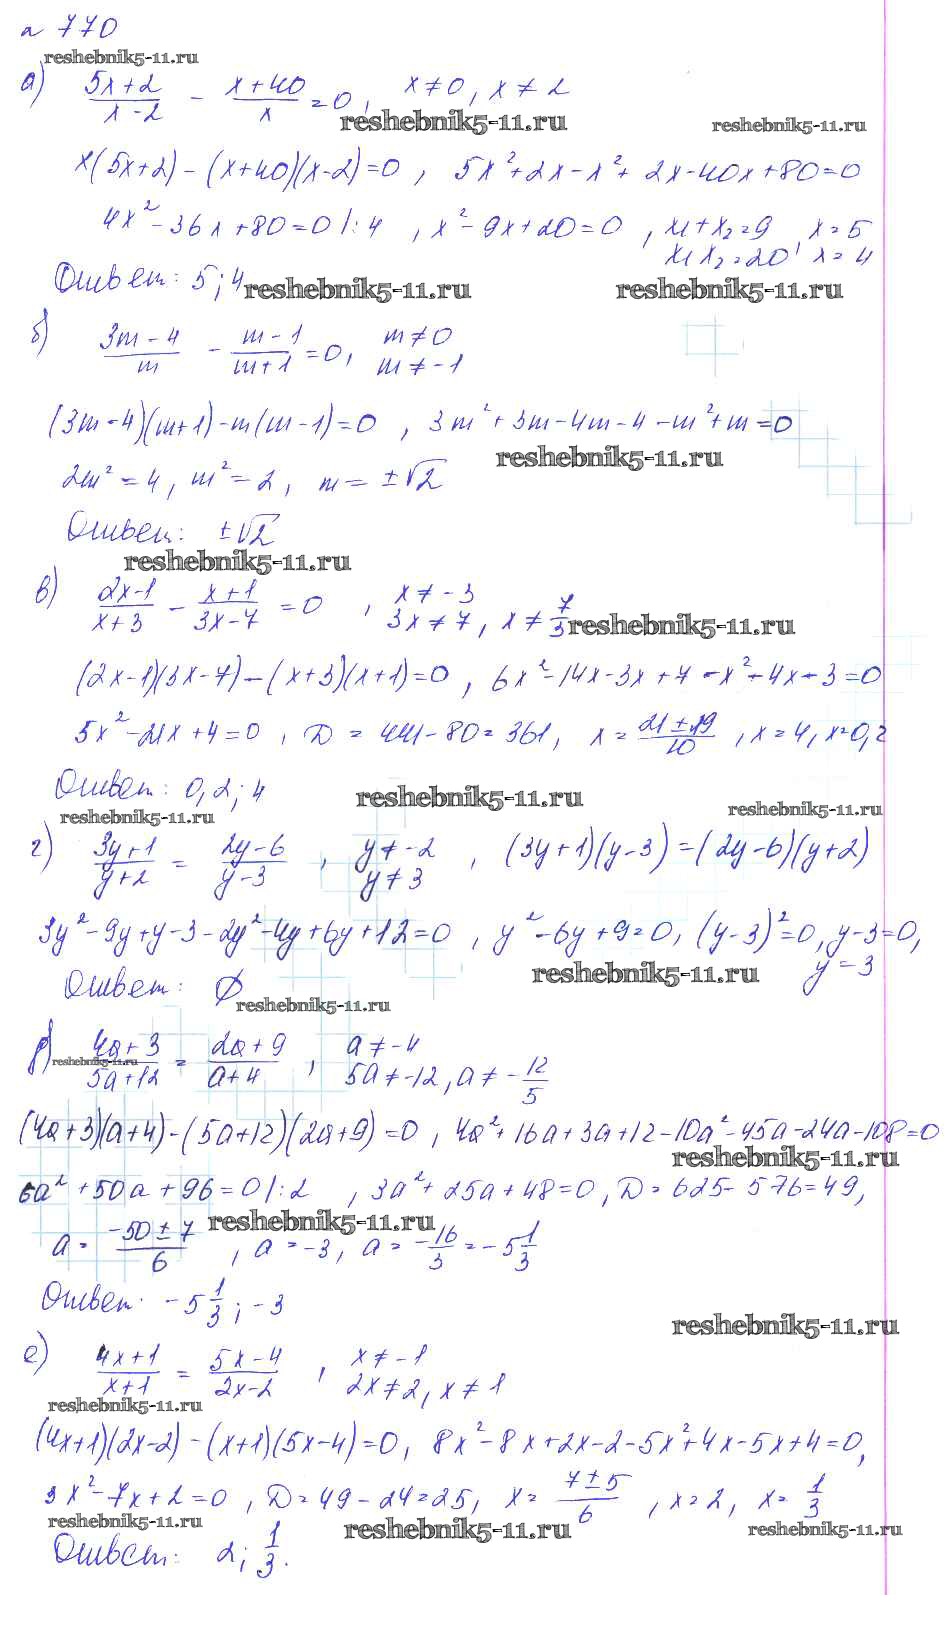 № 770
reshebnik5-11.ru
а) (5x+2)/(x-2) - (x+40)/x = 0, x≠0, x≠2
reshebnik5-11.ru
reshebnik5-11.ru
x(5x+2) - (x+40)(x-2)=0, 5x²+2x-x²+2x-40x+80=0
4x²-36x+80=0 |:4, x²-9x+20=0, x₁+x₂=9, x=5
x₁x₂=20, x=4
Ответ: 5; 4
reshebnik5-11.ru
reshebnik5-11.ru
б) (3m-4)/m - (m-1)/(m+1) = 0, m≠0
m≠-1
(3m-4)(m+1)-m(m-1)=0, 3m²+3m-4m-4-m²+m=0
reshebnik5-11.ru
2m²=4, m²=2, m=±√2
Ответ: ±√2
reshebnik5-11.ru
в) (2x-1)/(x+3) - (x+1)/(3x-7) = 0, x≠-3
3x≠7, x≠7/3
reshebnik5-11.ru
(2x-1)(3x-7)-(x+3)(x+1)=0, 6x²-14x-3x+7-x²-4x-3=0
5x²-21x+4=0, D=441-80=361, x=(21±19)/10, x=4, x=0,2
Ответ: 0,2; 4
reshebnik5-11.ru
reshebnik5-11.ru
reshebnik5-11.ru
г) (3y+1)/(y+2) = (2y-6)/(y-3), y≠-2
y≠3, (3y+1)(y-3)=(2y-6)(y+2)
3y²-9y+y-3-2y²-4y+6y+12=0, y²-6y+9=0, (y-3)²=0, y-3=0,
y=3
reshebnik5-11.ru
Ответ: ∅
reshebnik5-11.ru
д) (4a+3)/(5a+12) = (2a+9)/(a+4), a≠-4
5a≠-12, a≠-12/5
reshebnik5-11.ru
(4a+3)(a+4)-(5a+12)(2a+9)=0, 4a²+16a+3a+12-10a²-45a-24a-108=0
reshebnik5-11.ru
6a²+50a+96=0 |:2, 3a²+25a+48=0, D=625-576=49,
reshebnik5-11.ru
a=(-50±7)/6, a=-3, a=-16/3=-5 1/3
Ответ: -5 1/3; -3
reshebnik5-11.ru
е) (4x+1)/(x+1) = (5x-4)/(2x-2), x≠-1
2x≠2, x≠1
reshebnik5-11.ru
(4x+1)(2x-2)-(x+1)(5x-4)=0, 8x²-8x+2x-2-5x²+4x-5x+4=0,
3x²-7x+2=0, D=49-24=25, x=(7±5)/6, x=2, x=1/3
reshebnik5-11.ru
reshebnik5-11.ru
reshebnik5-11.ru
Ответ: 2; 1/3.